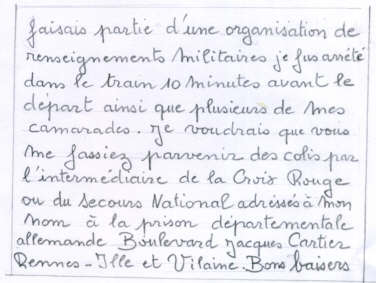 faisais partie d'une organisation de
renseignements militaires je fus arrêté
dans le train 10 minutes avant le
départ ainsi que plusieurs de mes
camarades. Je voudrais que vous
me fassiez parvenir des colis par
l'intermédiaire de la Croix Rouge
ou du Secours National adréssés à mon
nom à la prison départementale
allemande Boulevard Jacques Cartier
Rennes - Ille et Vilaine. Bons baisers